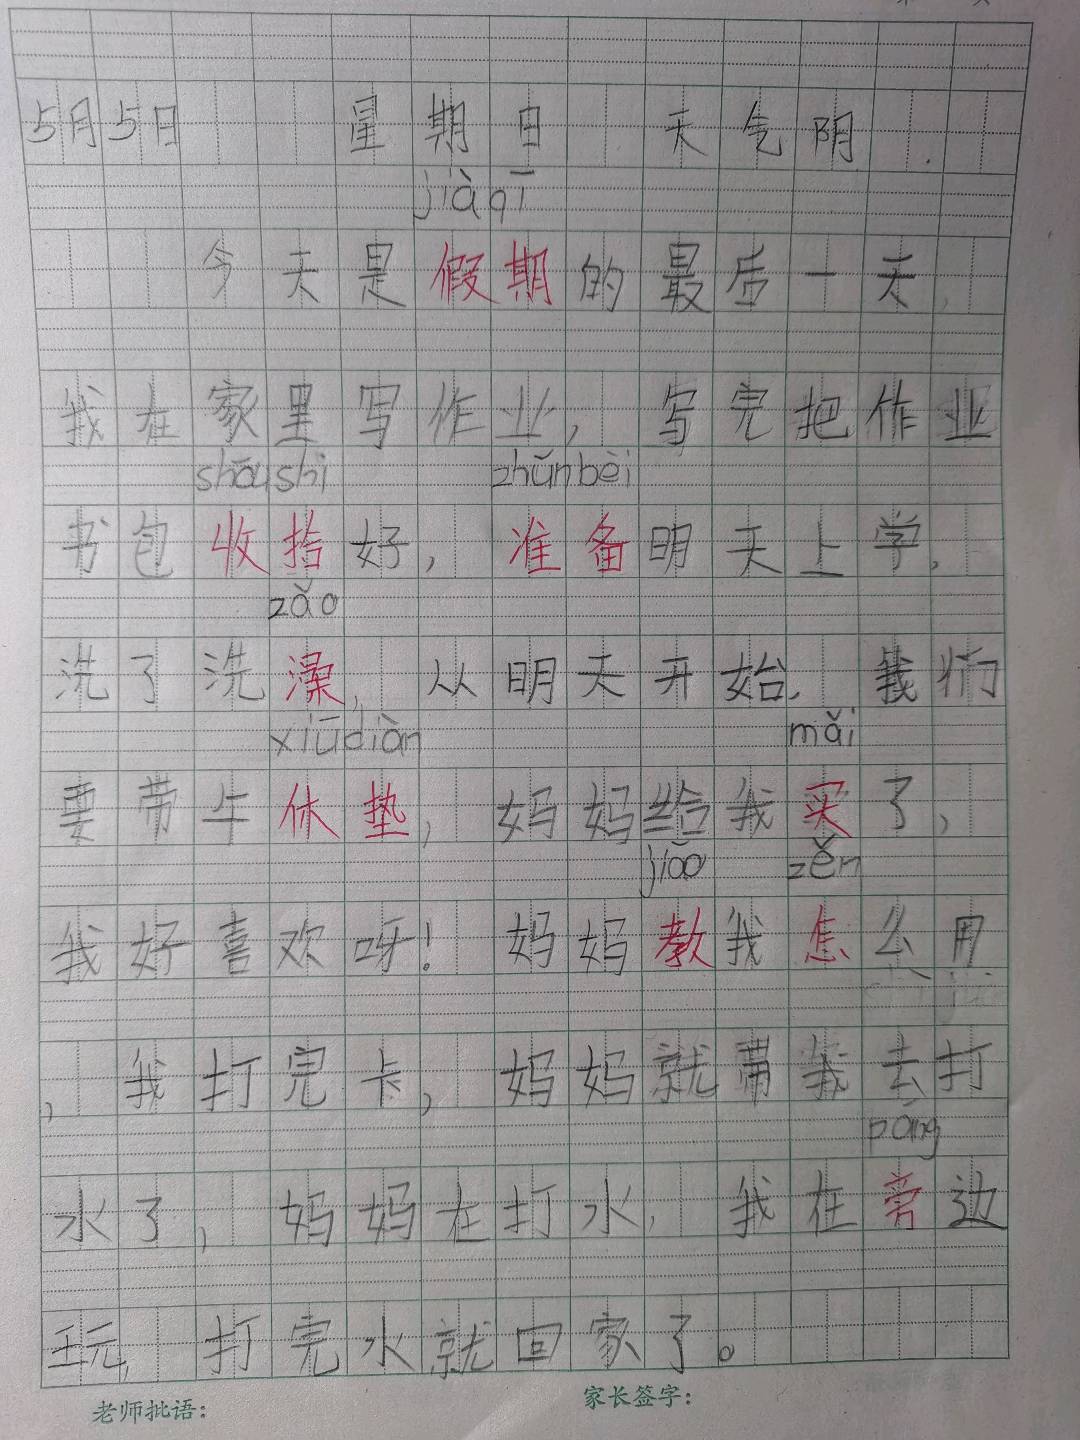 5月5日 星期日 天气阴.
jià qī
今天是假期的最后一天,
我在家里写作业,写完把作业
shōu shi zhǔn bèi
书包收拾好,准备明天上学,
zǎo
洗了洗澡,从明天开始,我们
xiū diàn mǎi
要带午休垫,妈妈给我买了,
jiāo zěn
我好喜欢呀!妈妈教我怎么用
,我打完卡,妈妈就带我去打
páng
水了,妈妈在打水,我在旁边
玩,打完水就回家了。
老师批语: 家长签字: